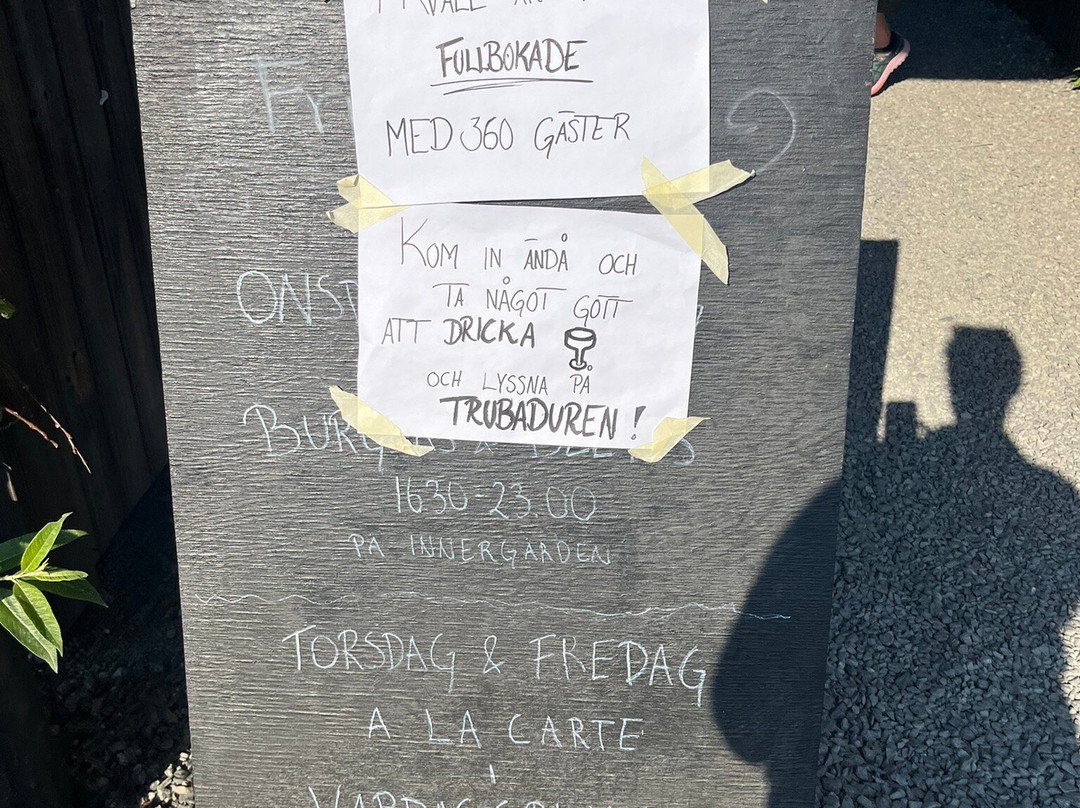 FULLBOKADE
MED 360 GÄSTER
KOM IN ÄNDÅ OCH
TA NÅGOT GOTT
ATT DRICKA
OCH LYSSNA PÅ
TRUBADUREN!
1630-23.00
PÅ INNERGÅRDEN
TORSDAG & FREDAG
A LA CARTE